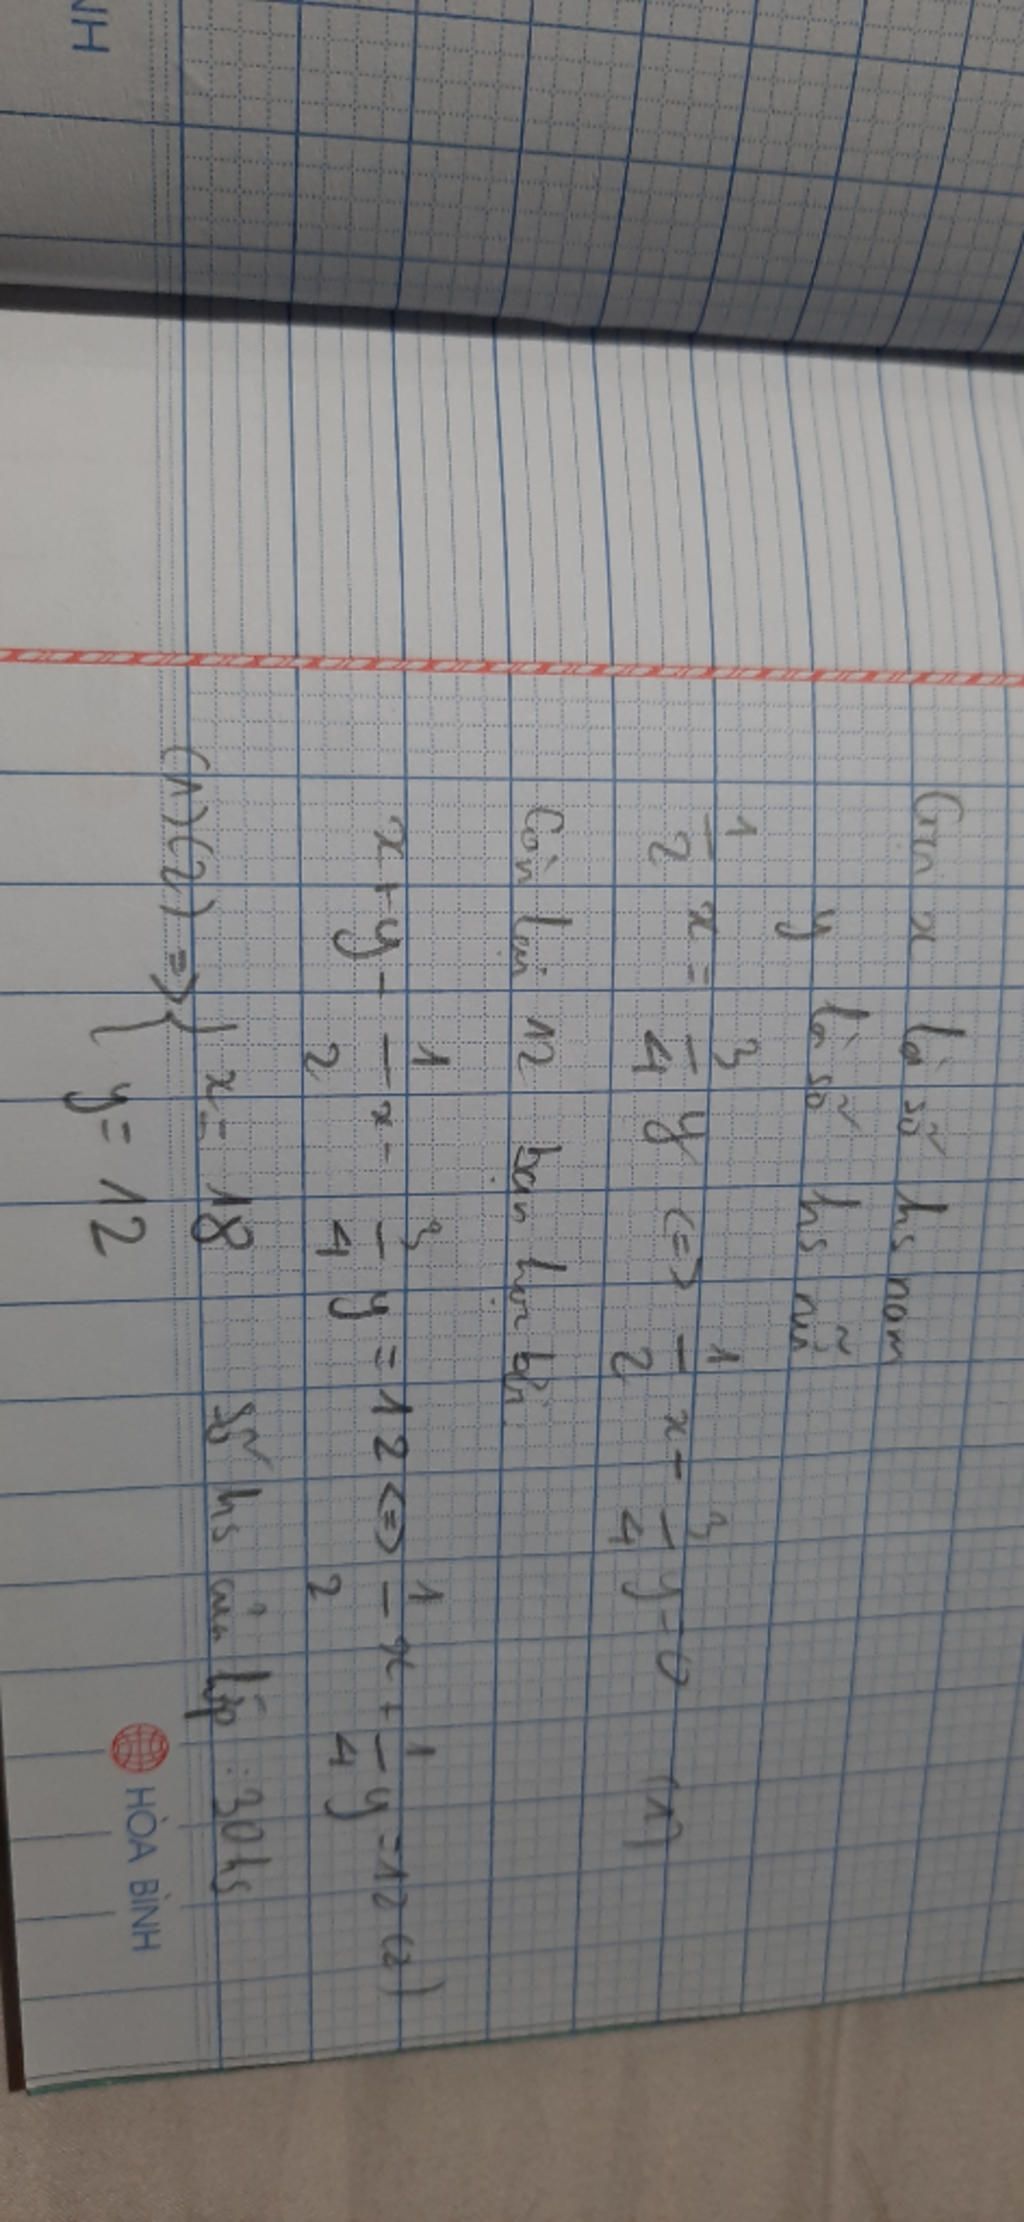 Gọi x là số hs nam
y là số hs nữ
1/2 x = 3/4 y <=> 1/2 x - 3/4 y = 0 (1)
Còn lại 12 bạn
x + y - 1/2 x - 3/4 y = 12 <=> 1/2 x + 1/4 y = 12 (2)
(1)(2) => { x = 18 số hs của lớp : 30 hs
{ y = 12
HÒA BÌNH
NH